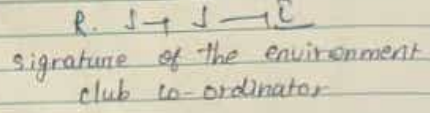 R.
signature of the environment
club co-ordinator